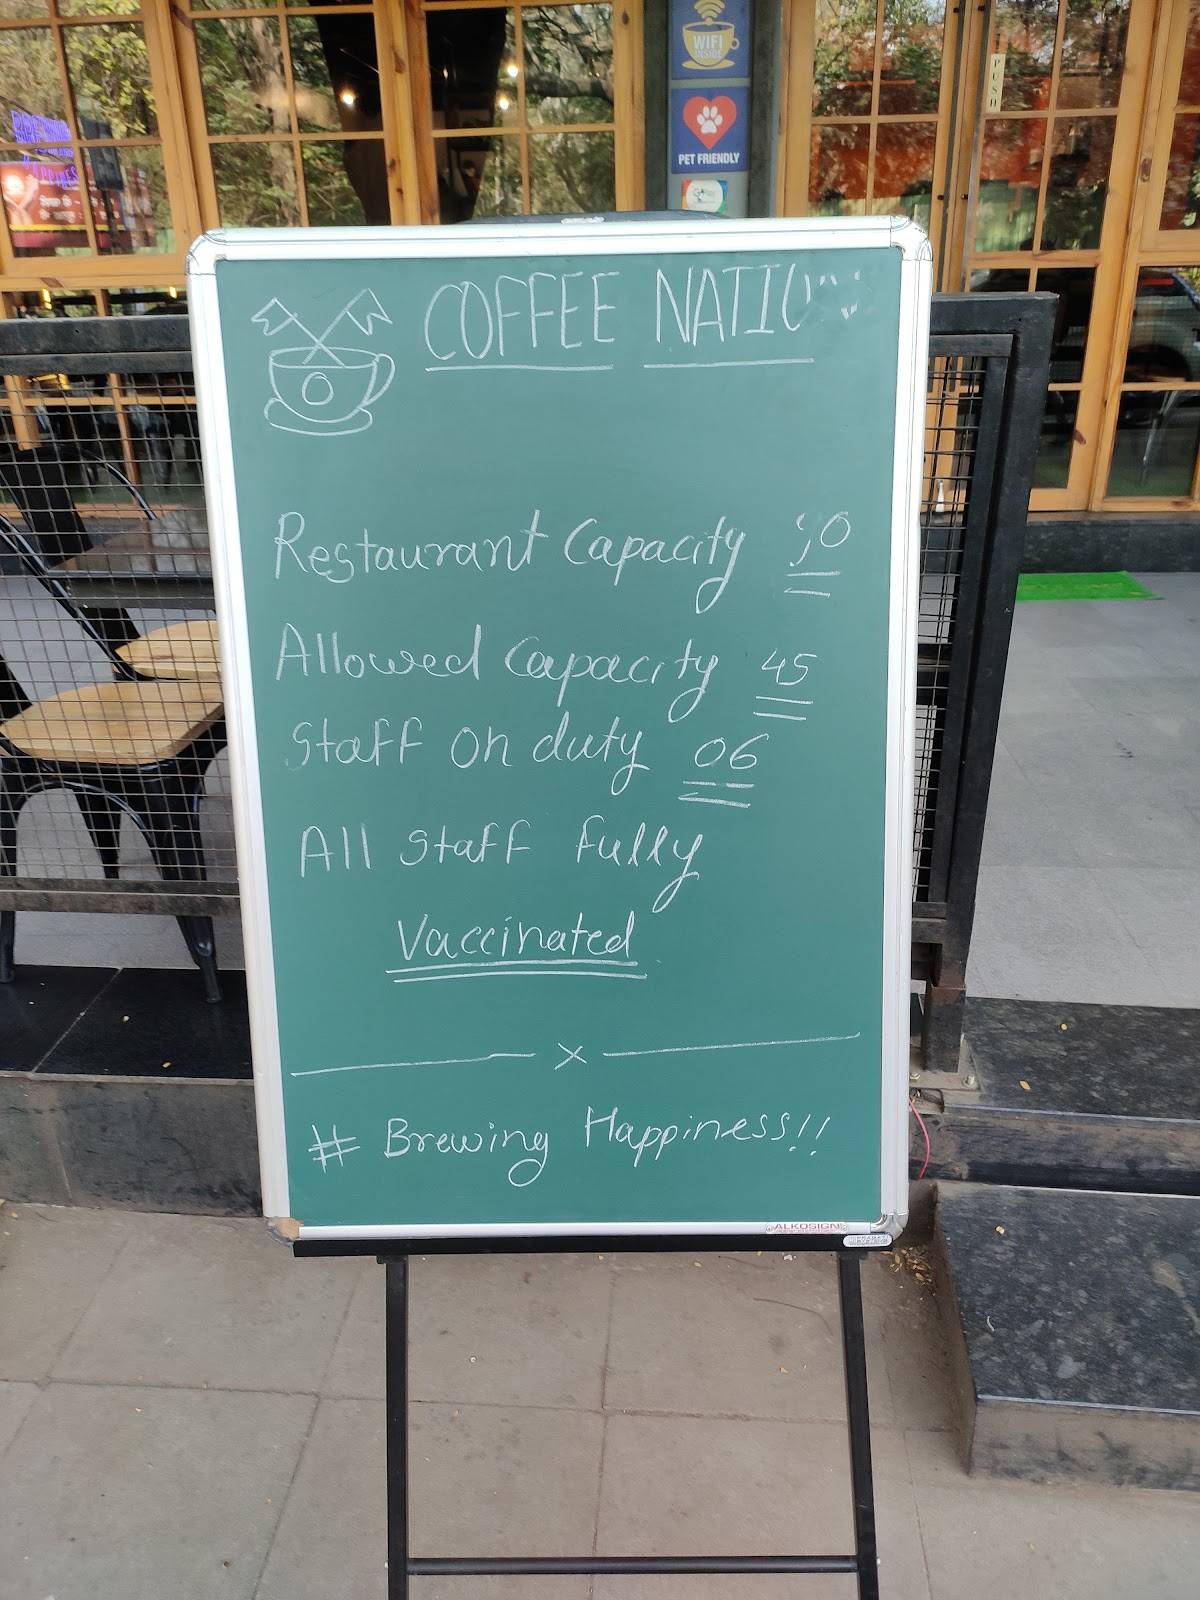 WIFI
INSIDE
PUSH
PET FRIENDLY
COFFEE
Restaurant Capacity
Allowed Capacity 45
Staff on duty 06
All staff fully
Vaccinated
x
# Brewing Happiness!!
ALKOSIGN